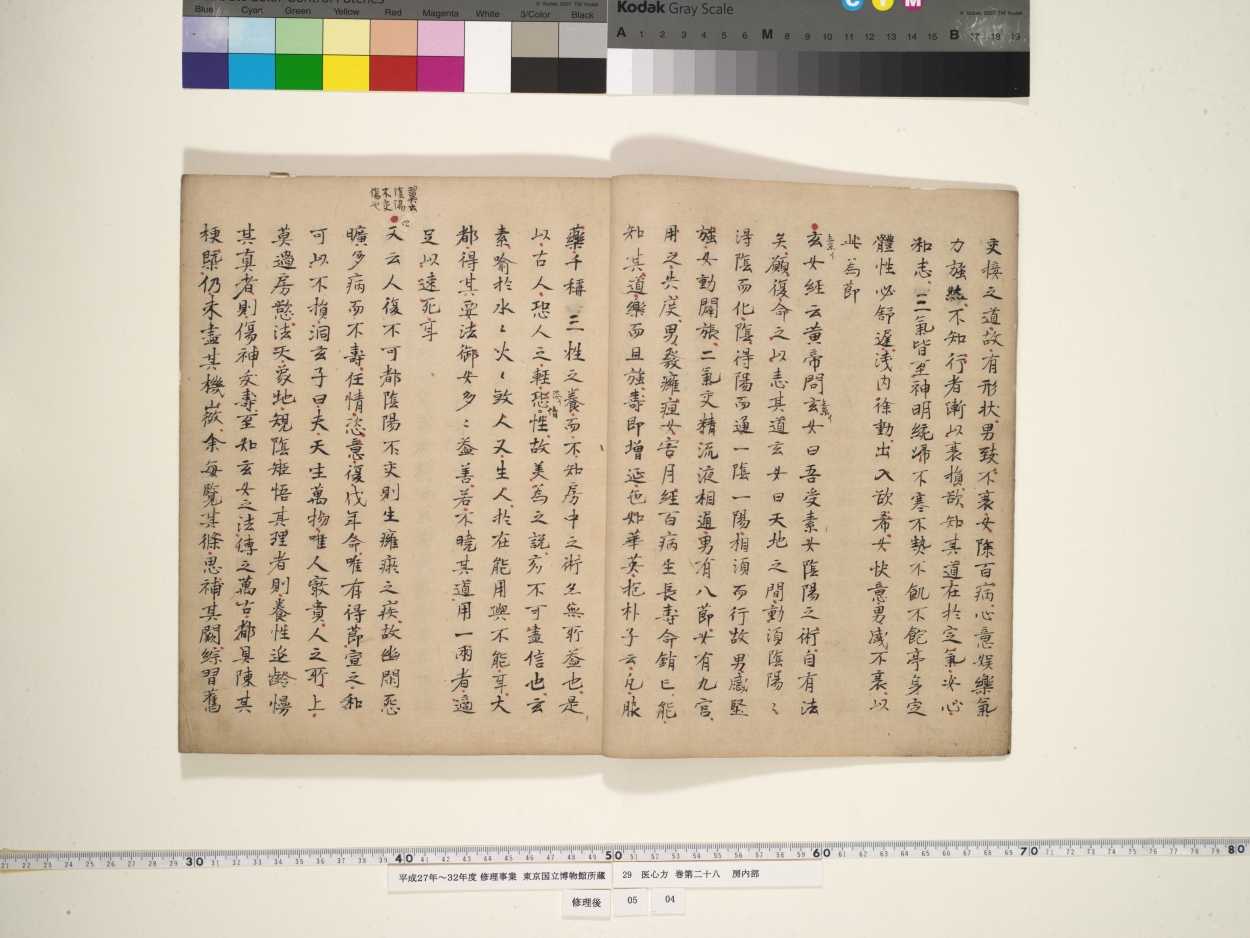 Blue Cyan Green Yellow Red Magenta White 3/Color Black
© Kodak, 2007 TM: Kodak
Kodak Gray Scale
C Y M
© Kodak, 2007 TM: Kodak
A 1 2 3 4 5 6 M 8 9 10 11 12 13 14 15 B 17 18 19
交接之道故有形状男致不衰女除百病心意娯樂氣
力強然不知行者漸以衰損欲知其道在於定氣安心
和志三氣皆至神明統帰不寒不熱不飢不飽亭身定
體性必舒遅浅内徐動出入欲希女快意男盛不衰以
此為節
玄女経云黄帝問玄女曰吾受素女陰陽之術自有法
矣願復命之以悉其道玄女曰天地之間動須陰陽〻
得陰而化陰得陽而通一陰一陽相須而行故男感堅
強女動闢張二氣交精流液相通男有八節女有九宮
用之失度男發癰疽女害月経百病生長壽命銷亡能
知其道樂而且強壽即増延色如華英抱朴子云凡服
藥千種三牲之養而不知房中之術亦無所益也是
以古人恐人之輕恣性故美為之説亦不可盡信也玄
素喩於水〻火〻致人又生人於在能用與不能耳大
都得其要法御女多〻益善若不曉其道用一兩者適
足以速死耳
翼云
陰陽
不交
傷也
又云人復不可都陰陽不交則生癰瘀之疾故幽閑怨
曠多病而不壽任情恣意復伐年命唯有得節宣之和
可以不損洞玄子曰夫天生萬物唯人最貴人之所上
莫過房慾法天象地規陰矩陽悟其理者則養性延齡慢
其真者則傷神夭壽至知玄女之法傳之萬古都具陳其
梗槩仍未盡其機微余毎覧其條思補其闕綜習舊
平成27年～32年度 修理事業 東京国立博物館所蔵
29 医心方 巻第二十八 房内部
修理後 05 04